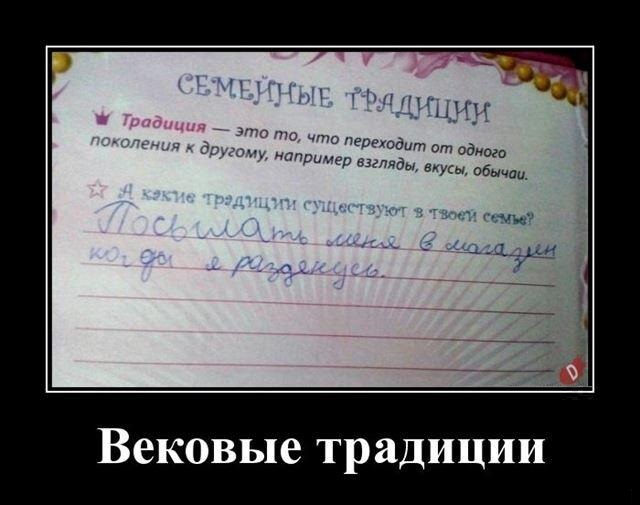 СЕМЕЙНЫЕ ТРАДИЦИИ
Традиция — это то, что переходит от одного
поколения к другому, например взгляды, вкусы, обычаи.
А какие традиции существуют в твоей семье?
Посылать меня в магазин
когда я разденусь.
D
Вековые традиции